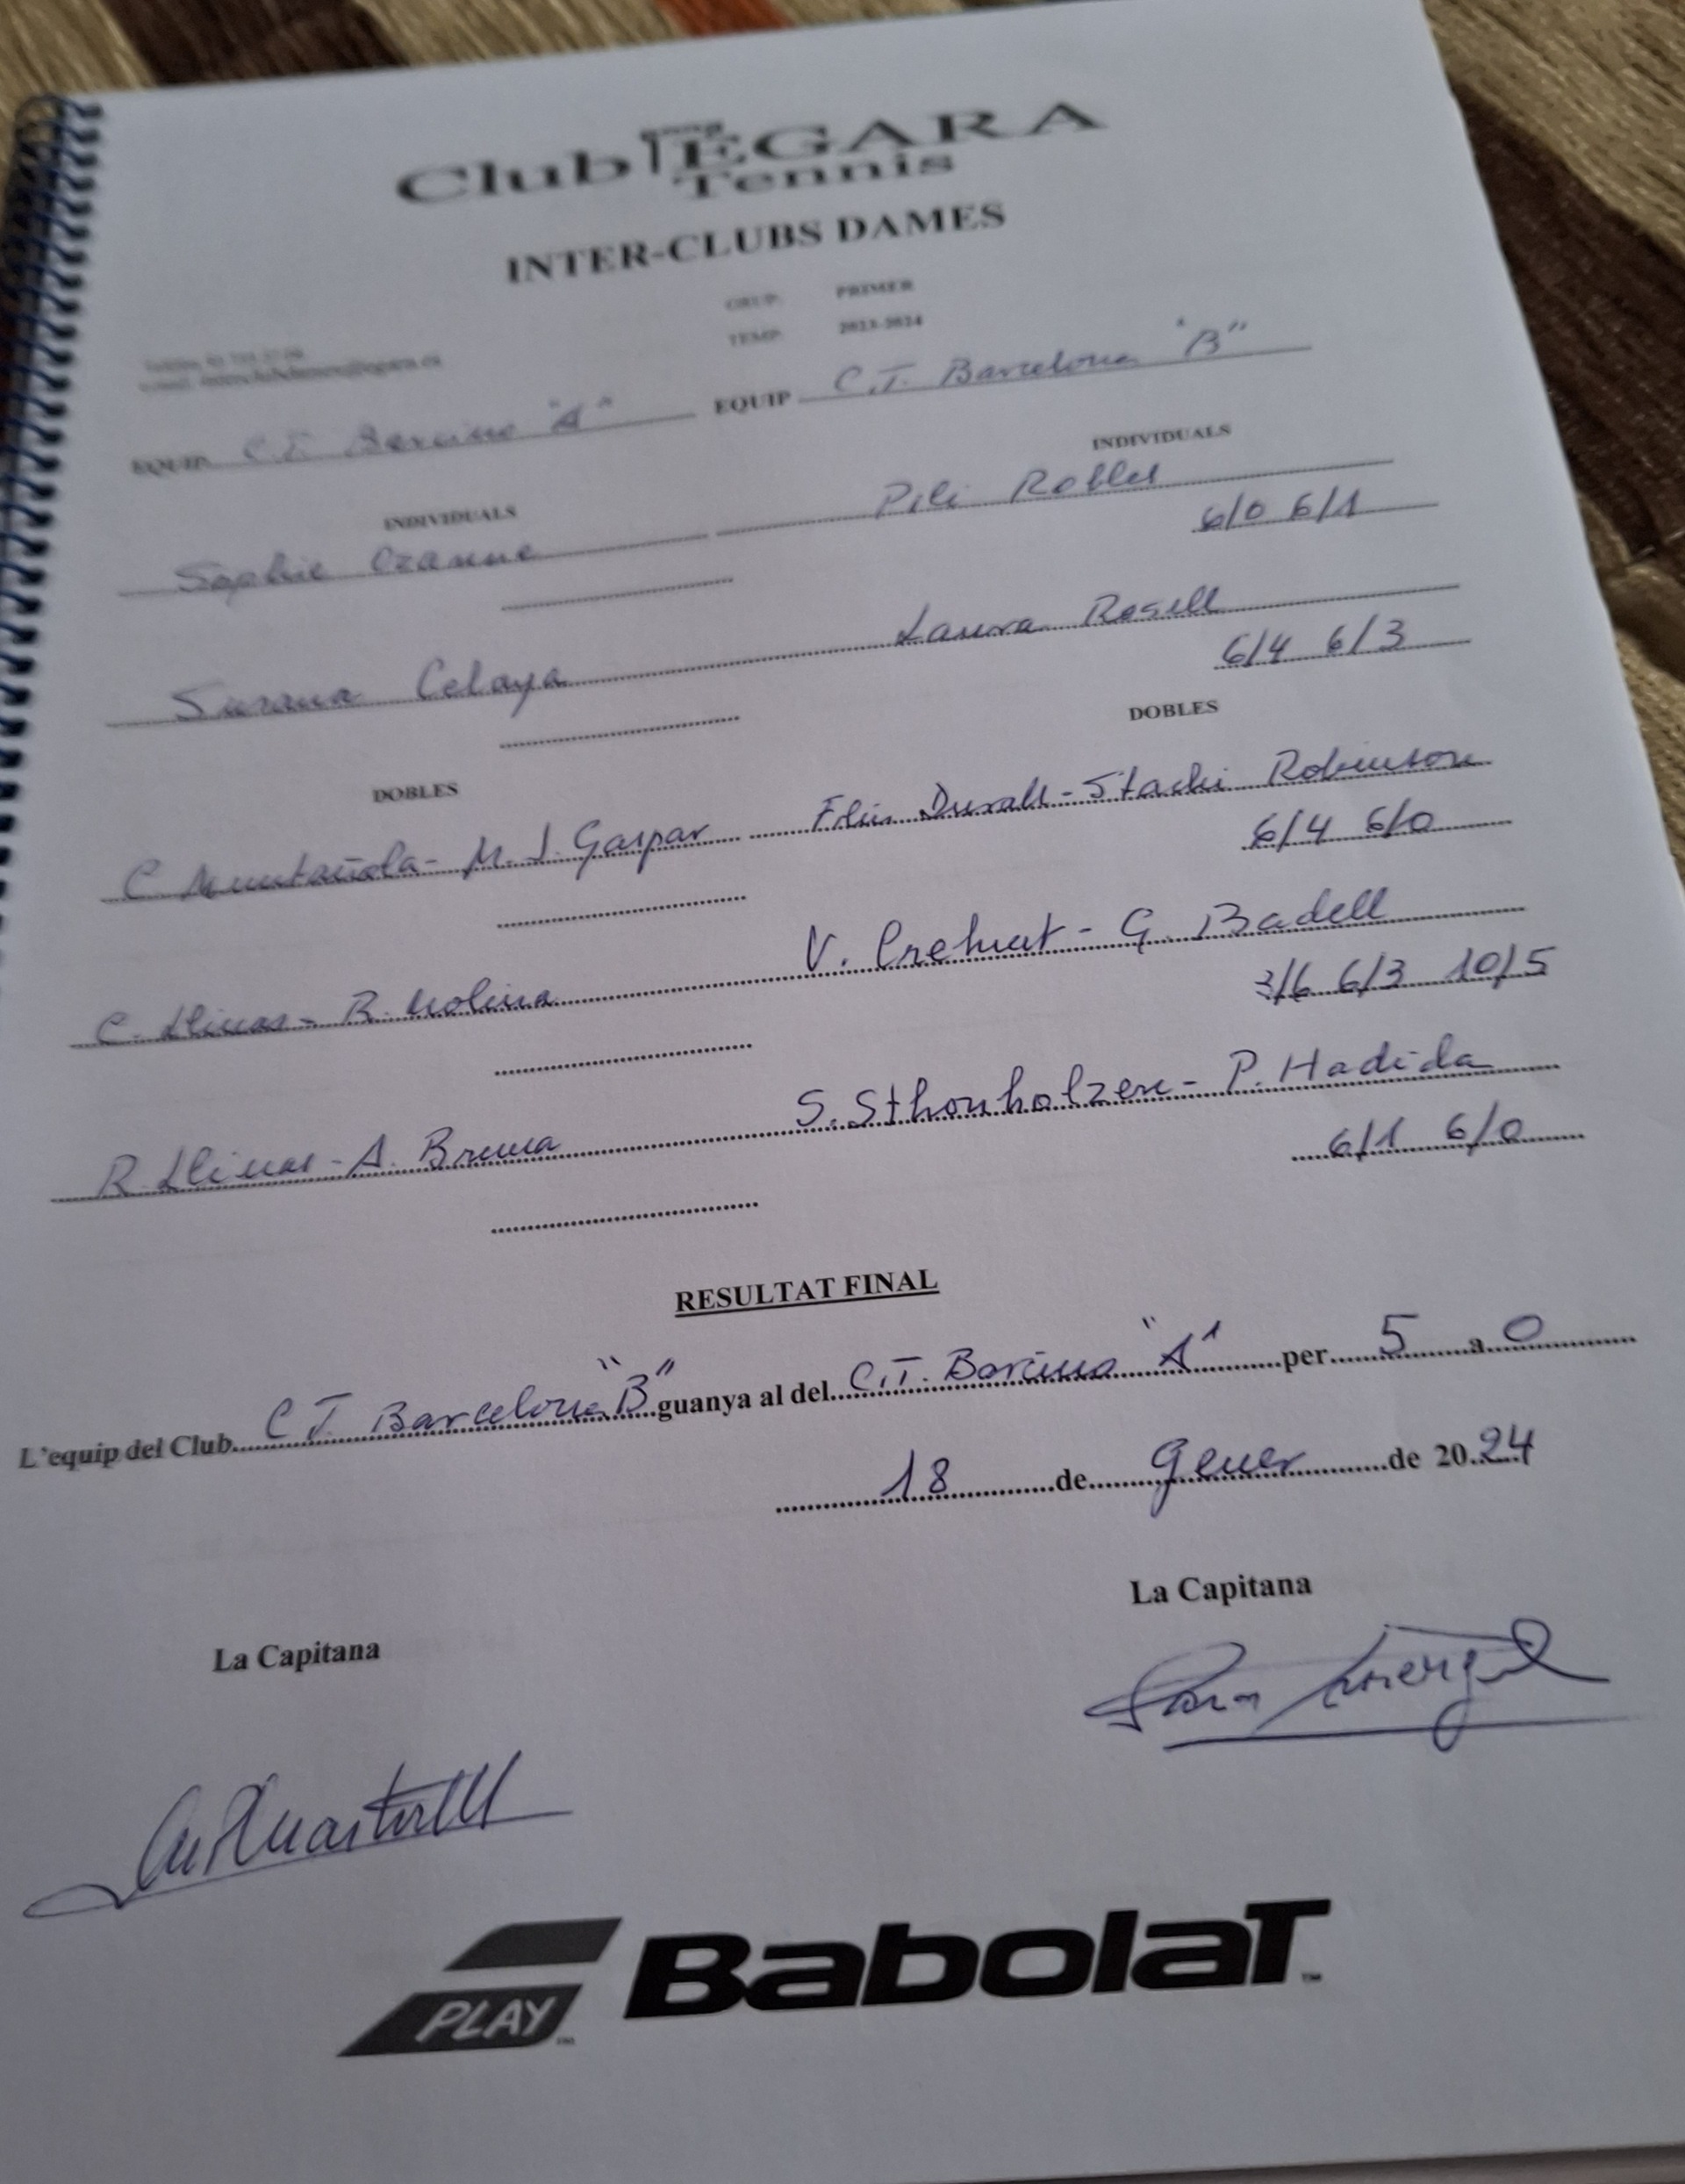 Club EGARA
Tennis
INTER-CLUBS DAMES
GRUP: PRIMER
TEMP: 2023-2024
EQUIP C.T. Barcino "A" EQUIP C.T. Barcelona "B"
INDIVIDUALS INDIVIDUALS
Sophie Pili Robles
6/0 6/1
Susana Celaya Laura Rosell
6/4 6/3
DOBLES DOBLES
C. Muntañola - M. J. Gaspar Robinson
6/4 6/0
C. Llinas - R. Molina V. Crehuet - G. Badell
3/6 6/3 10/5
R. Llinas - A. Bruna S. Sthonholzen - P. Hadida
6/1 6/0
RESULTAT FINAL
L'equip del Club C T. Barcelona "B" guanya al del C.T. Barcino "A" per 5 a 0
18 de Gener de 2024
La Capitana La Capitana
PLAY Babolat